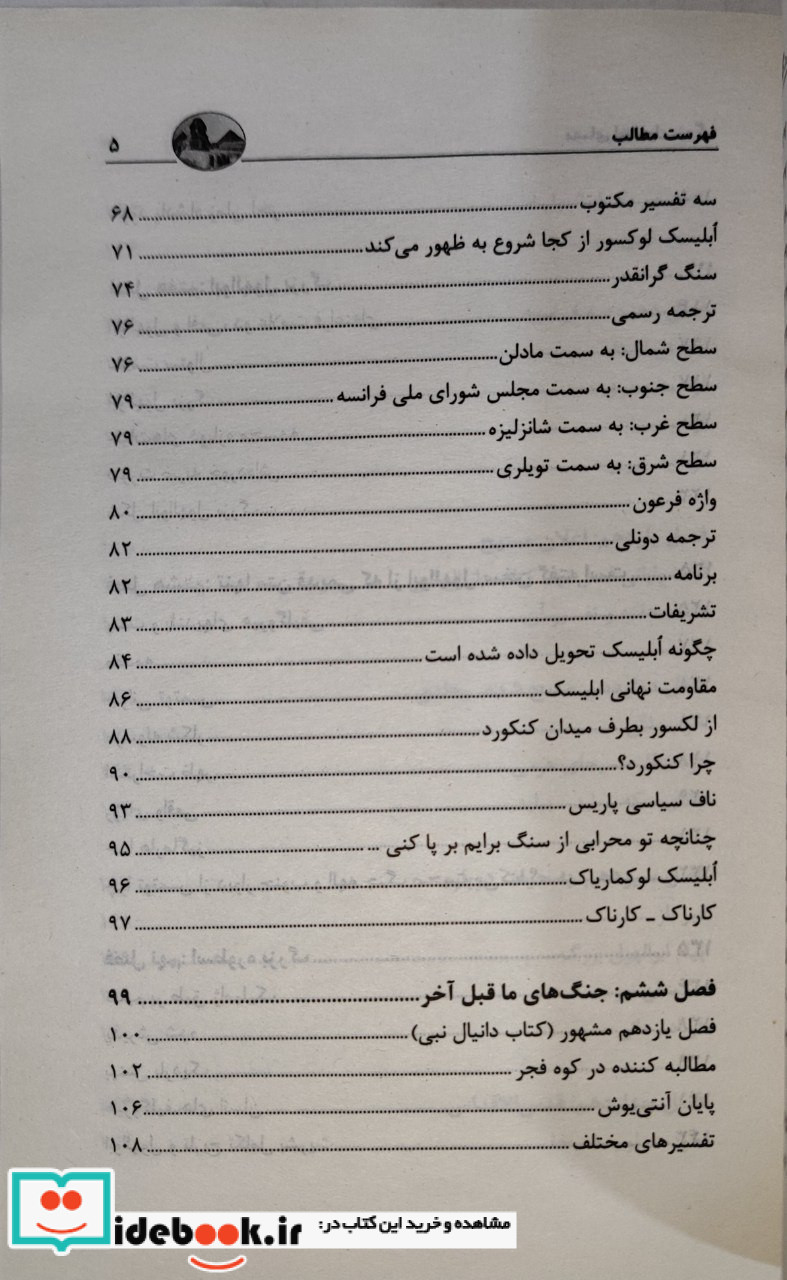 فهرست مطالب ۵
سه تفسیر مکتوب ۶۸
اُبلیسک لوکسور از کجا شروع به ظهور می‌کند ۷۱
سنگ گرانقدر ۷۴
ترجمه رسمی ۷۶
سطح شمال: به سمت مادلن ۷۶
سطح جنوب: به سمت مجلس شورای ملی فرانسه ۷۹
سطح غرب: به سمت شانزلیزه ۷۹
سطح شرق: به سمت تویلری ۷۹
واژه فرعون ۸۰
ترجمه دونلی ۸۲
برنامه ۸۲
تشریفات ۸۳
چگونه اُبلیسک تحویل داده شده است ۸۴
مقاومت نهانی ابلیسک ۸۶
از لکسور بطرف میدان کنکورد ۸۸
چرا کنکورد؟ ۹۰
ناف سیاسی پاریس ۹۳
چنانچه تو محرابی از سنگ برایم بر پا کنی ... ۹۵
اُبلیسک لوکماریاک ۹۶
کارناک ـ کارناک ۹۷
فصل ششم: جنگ‌های ما قبل آخر ۹۹
فصل یازدهم مشهور (کتاب دانیال نبی) ۱۰۰
مطالبه کننده در کوه فجر ۱۰۲
پایان آنتی‌یوش ۱۰۶
تفسیرهای مختلف ۱۰۸
مشاهده و خرید این کتاب در: idebook.ir